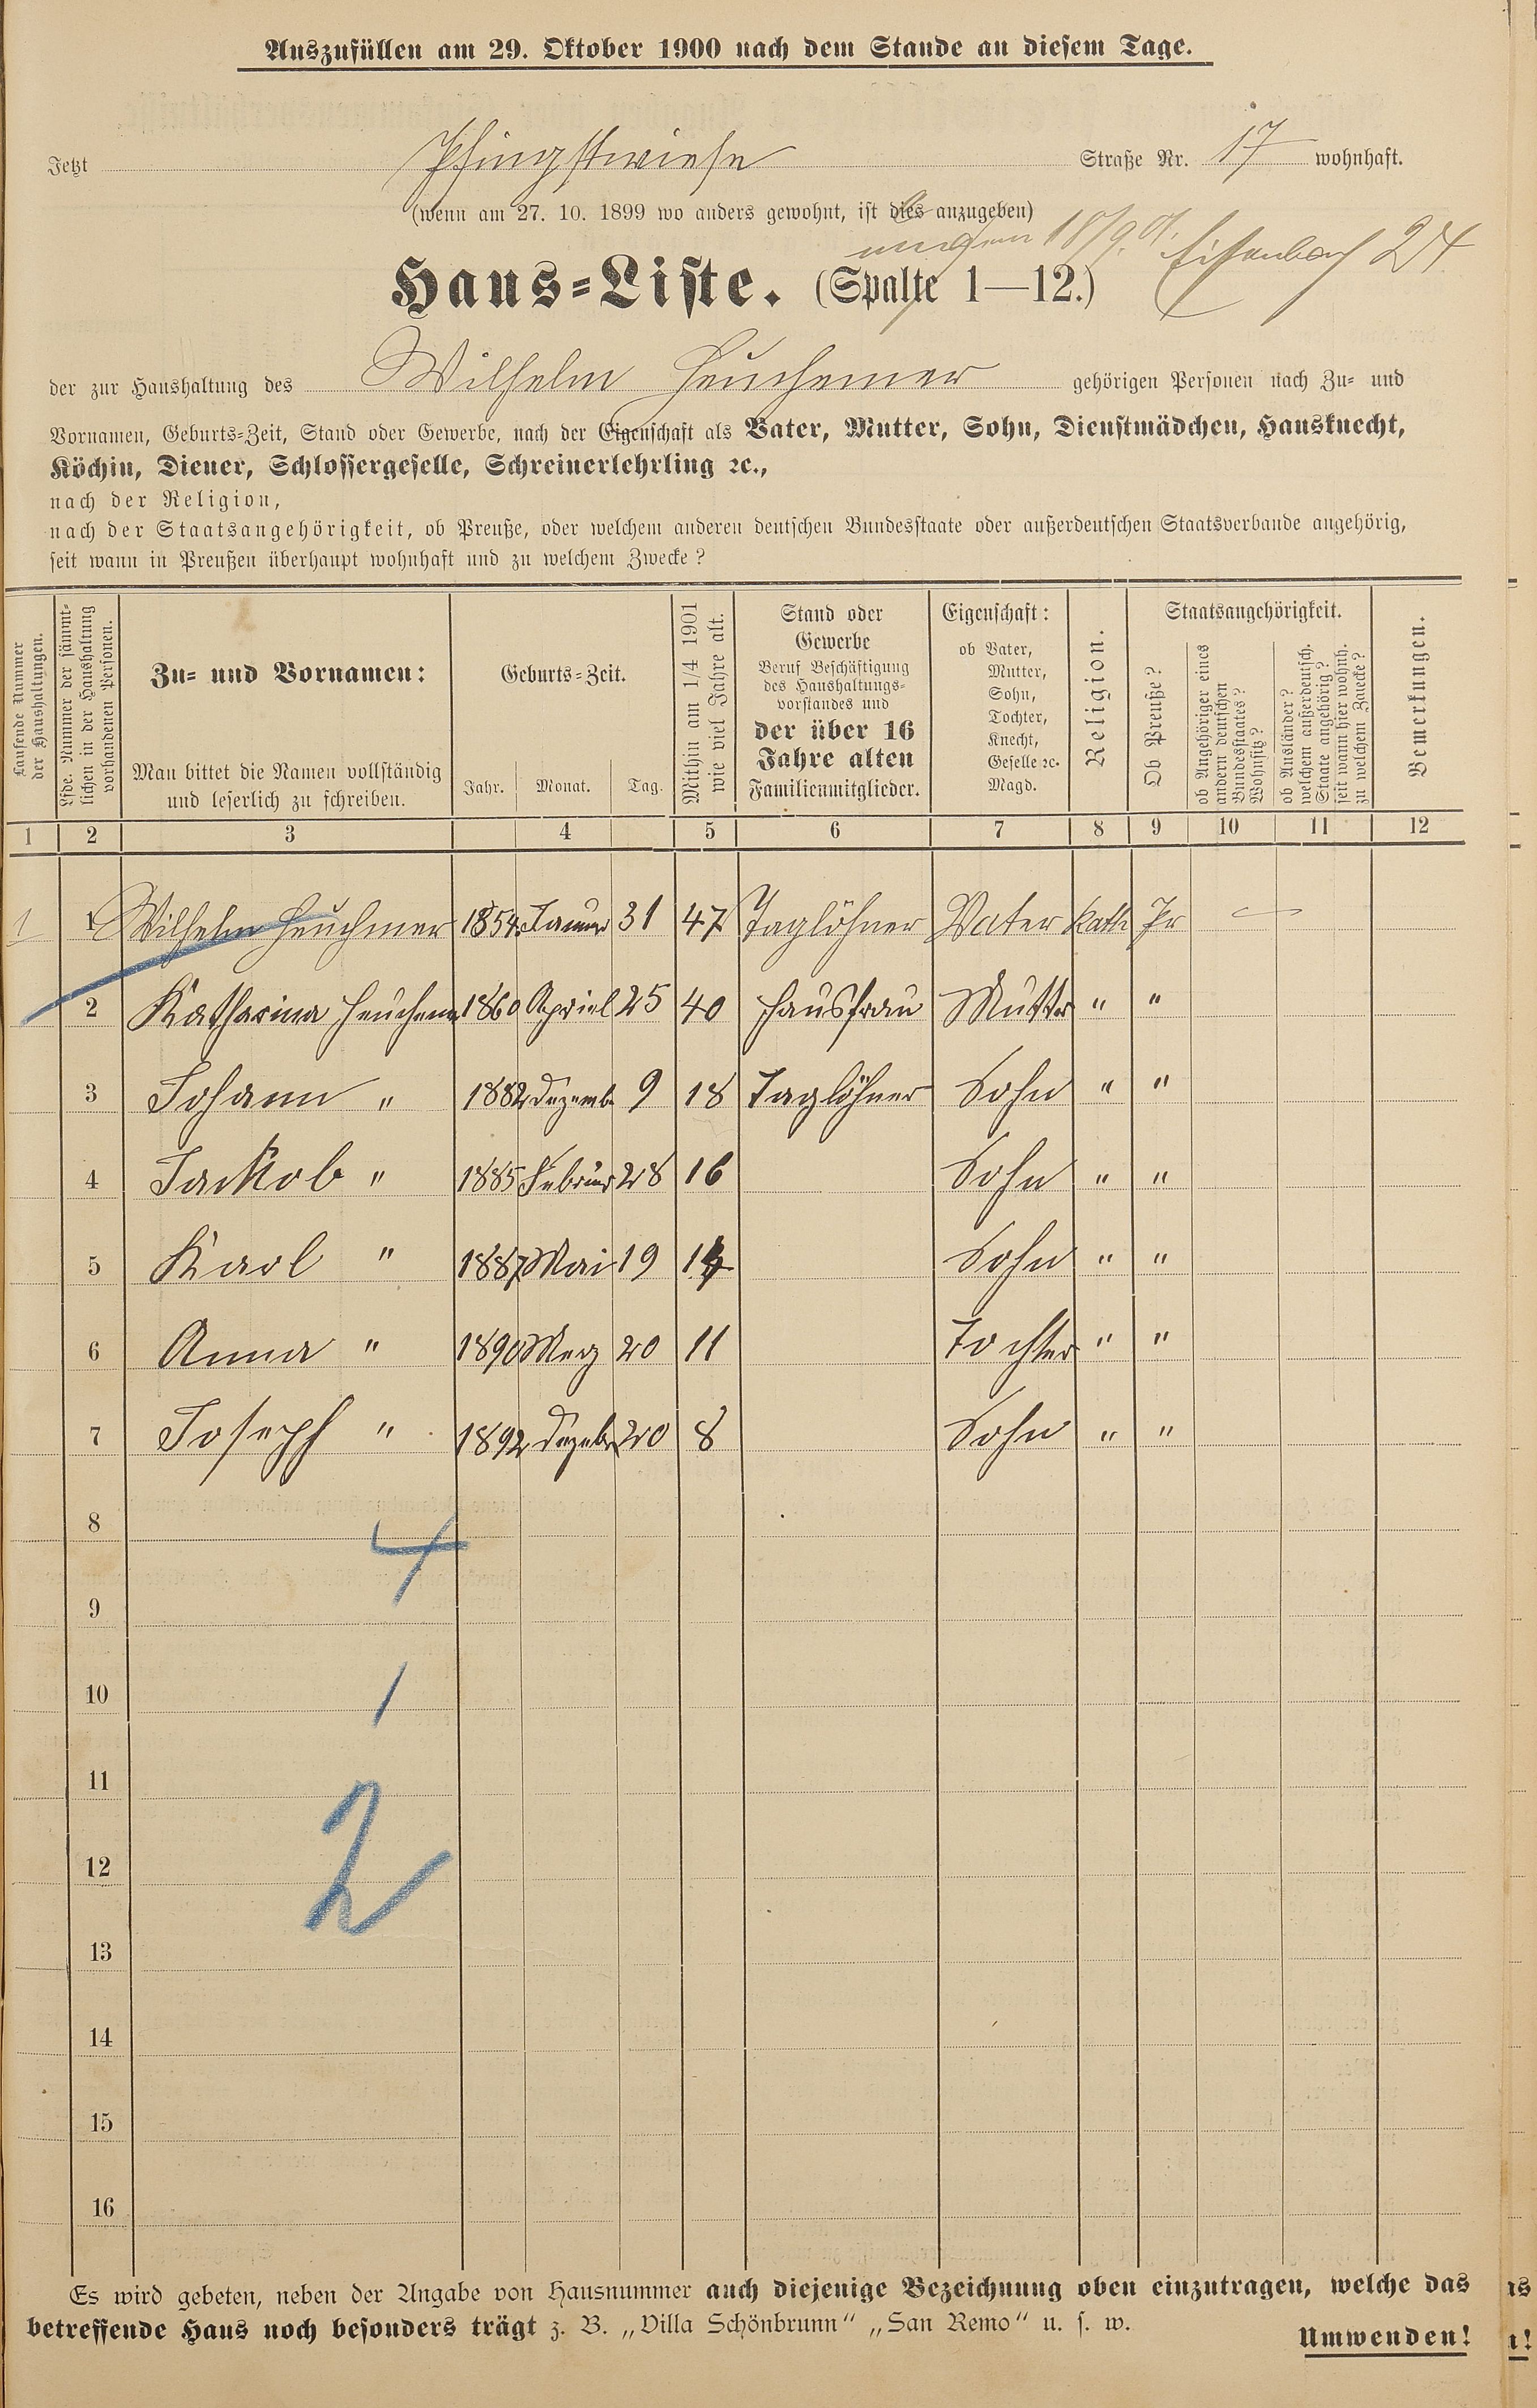 Auszufüllen am 29. Oktober 1900 nach dem Stande an diesem Tage.
Jetzt Pfingstwiese Straße Nr. 17 wohnhaft.
(wenn am 27. 10. 1899 wo anders gewohnt, ist dies anzugeben)
18/9.01. Eisenbach 24
Haus-Liste. (Spalte 1—12.)
der zur Haushaltung des Wilhelm Heuchemer gehörigen Personen nach Zu- und
Vornamen, Geburts-Zeit, Stand oder Gewerbe, nach der Eigenschaft als Vater, Mutter, Sohn, Dienstmädchen, Hausknecht,
Köchin, Diener, Schlossergeselle, Schreinerlehrling ꝛc.,
nach der Religion,
nach der Staatsangehörigkeit, ob Preuße, oder welchem anderen deutschen Bundesstaate oder außerdeutschen Staatsverbande angehörig,
seit wann in Preußen überhaupt wohnhaft und zu welchem Zwecke?
Laufende Nummer
der Haushaltungen.
Lfde. Nummer der sämmt-
lichen in der Haushaltung
vorhandenen Personen.
Zu- und Vornamen:
Man bittet die Namen vollständig
und leserlich zu schreiben.
Geburts-Zeit.
Jahr. Monat. Tag.
Mithin am 1/4 1901
wie viel Jahre alt.
Stand oder
Gewerbe
Beruf Beschäftigung
des Haushaltungs-
vorstandes und
der über 16
Jahre alten
Familienmitglieder.
Eigenschaft:
ob Vater,
Mutter,
Sohn,
Tochter,
Knecht,
Geselle ꝛc.
Magd.
Religion.
Staatsangehörigkeit.
Ob Preuße?
ob Angehöriger eines
andern deutschen
Bundesstaates?
Wohnsitz?
ob Ausländer?
welchem außerdeutsch.
Staate angehörig?
seit wann hier wohnh.
zu welchem Zwecke?
Bemerkungen.
1 2 3 4 5 6 7 8 9 10 11 12
1 1 Wilhelm Heuchmer 1854 Januar 31 47 Taglöhner Vater Kath Pr —
2 Katharina Heuchemer 1860 Apriel 25 40 Hausfrau Mutter " "
3 Johann " 1882 Dezember 9 18 Taglöhner Sohn " "
4 Jackob " 1885 Februar 28 16 Sohn " "
5 Karl " 1887 Mai 19 14 Sohn " "
6 Anna " 1890 Merz 20 11 Tochter " "
7 Joseph " 1892 Dezeber 20 8 Sohn " "
8
4
9
10
1
11
12
2
13
14
15
16
Es wird gebeten, neben der Angabe von Hausnummer auch diejenige Bezeichnung oben einzutragen, welche das
betreffende Haus noch besonders trägt z. B. „Villa Schönbrunn“ „San Remo“ u. s. w.
Umwenden!